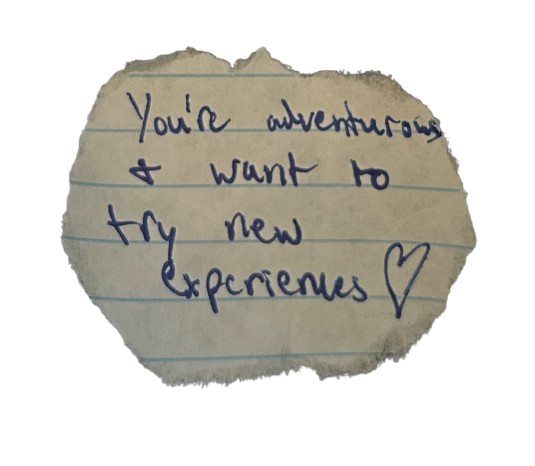 You're adventurous
& want to
try new
experiences ♡